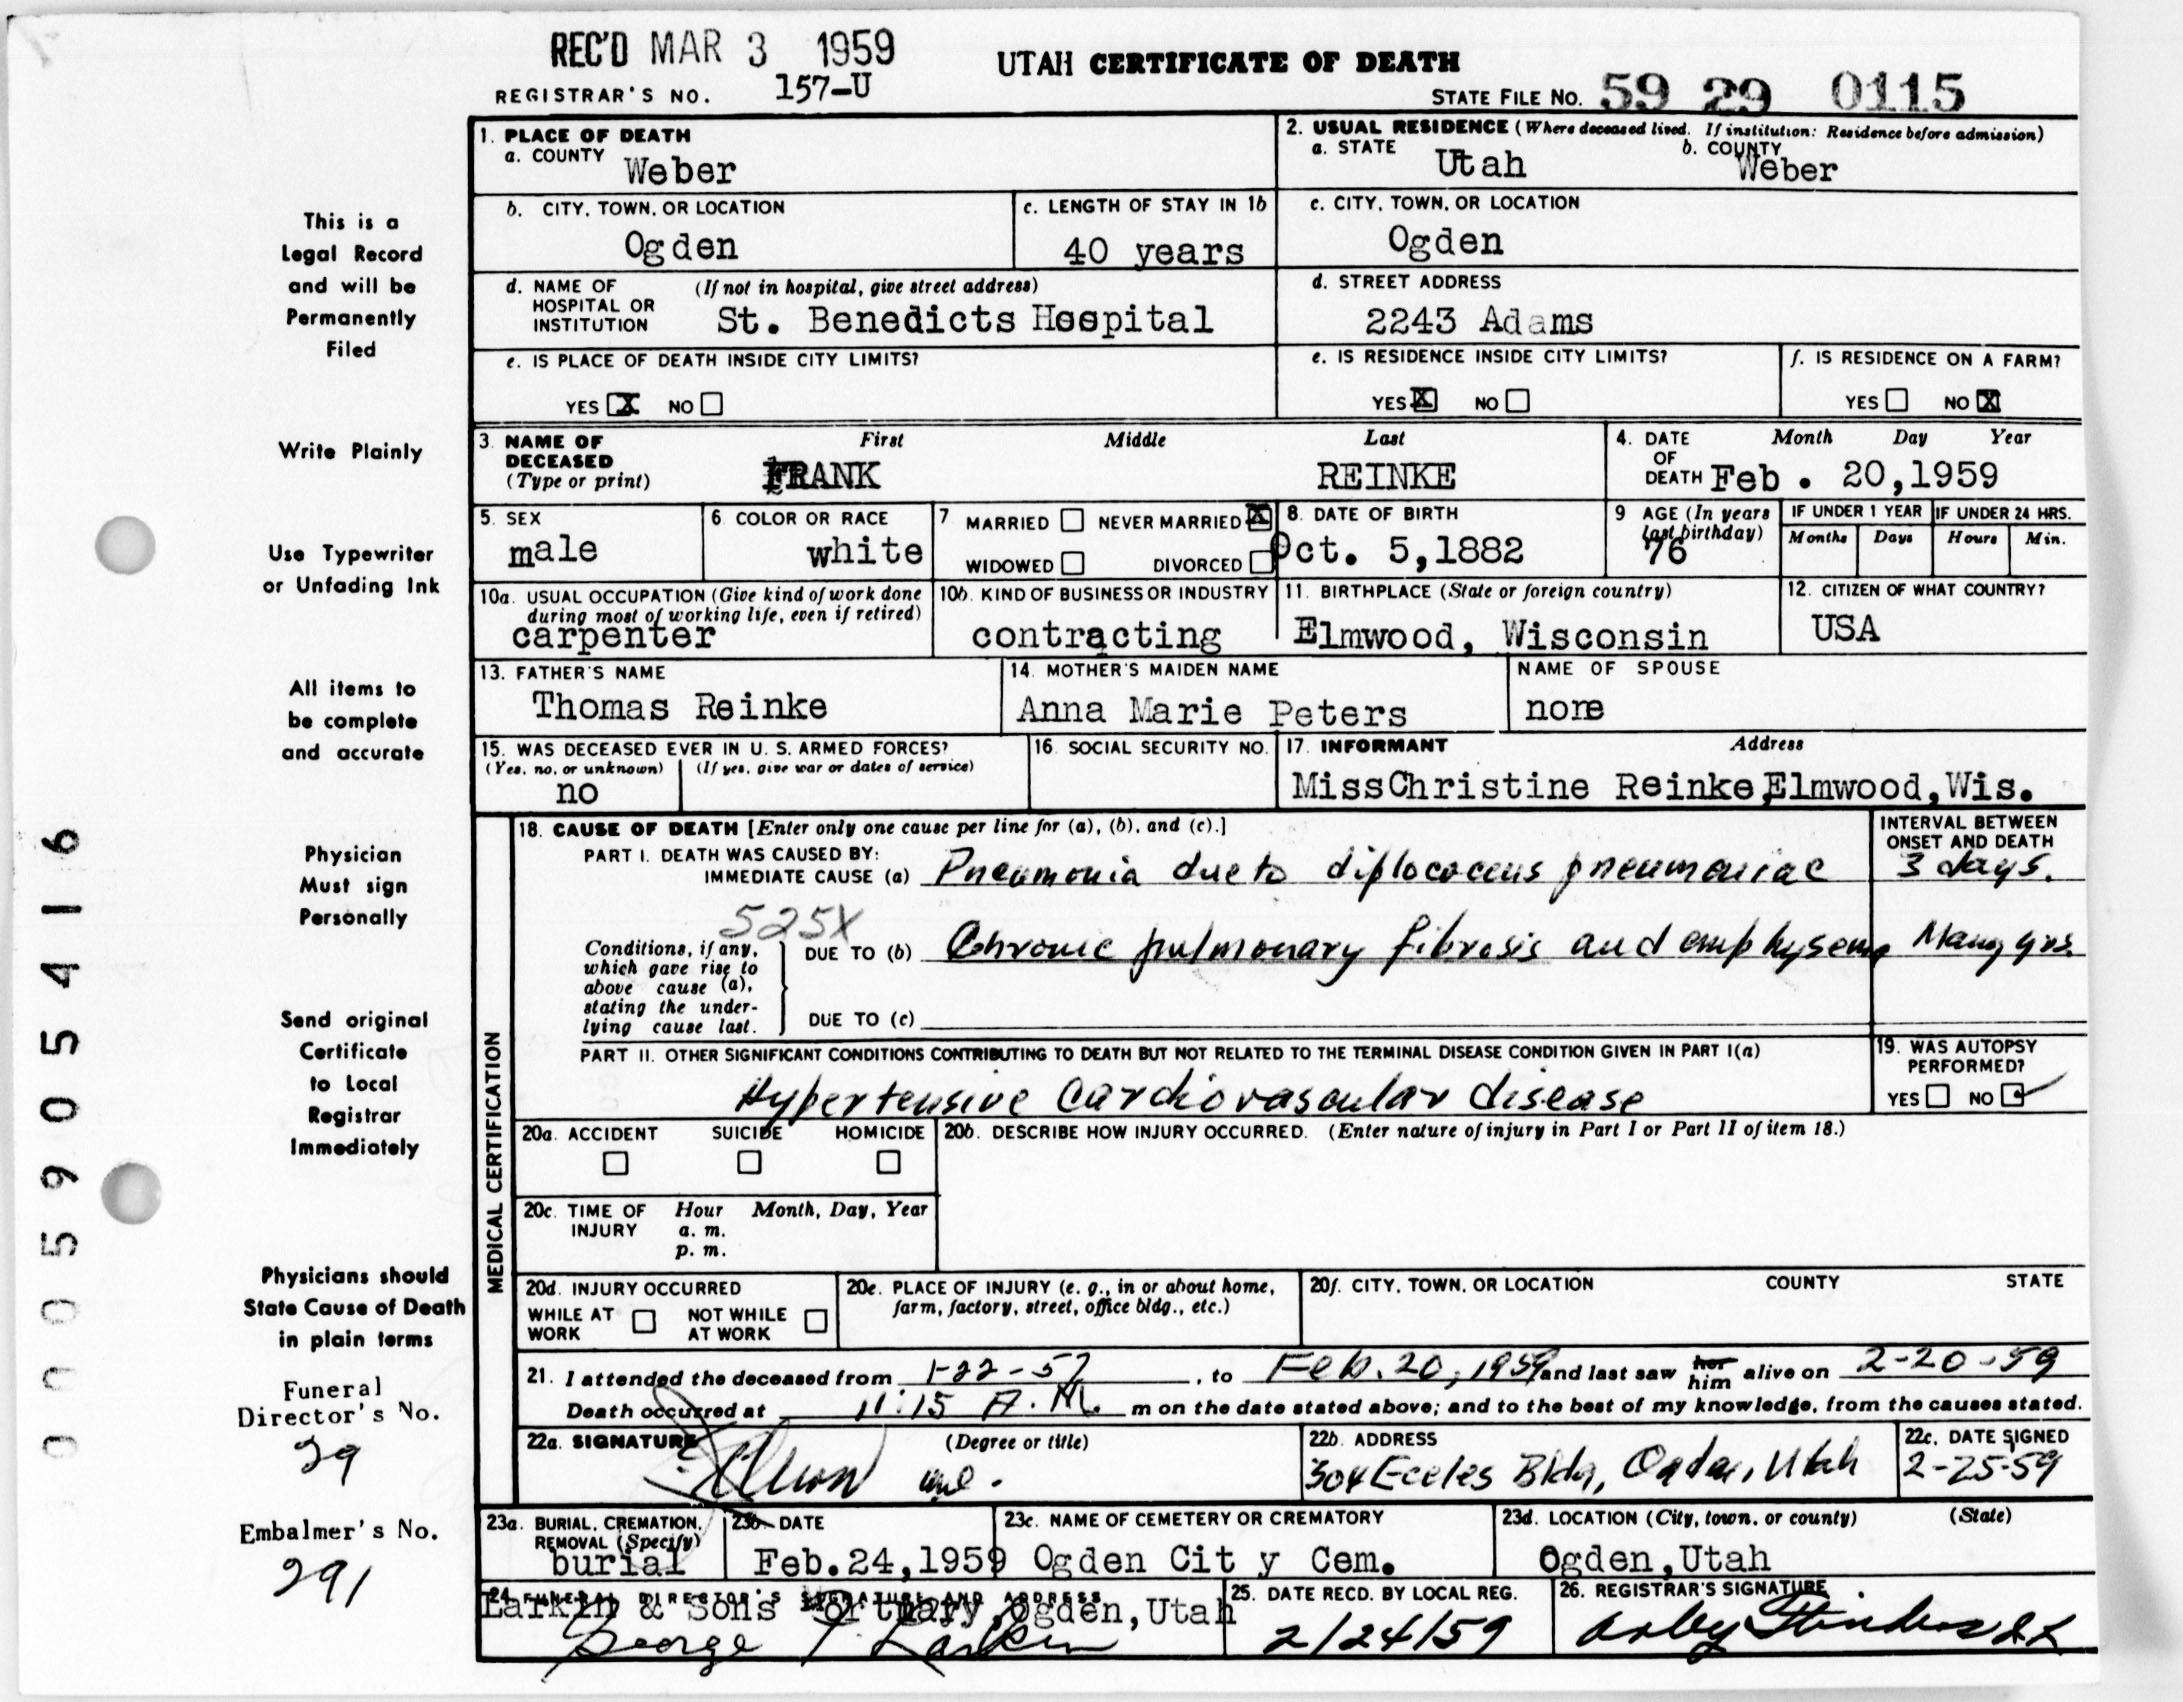 REC'D MAR 3 1959
UTAH CERTIFICATE OF DEATH
REGISTRAR'S NO. 157-U
STATE FILE No. 59 29 0115
1. PLACE OF DEATH
a. COUNTY Weber
2. USUAL RESIDENCE (Where deceased lived. If institution: Residence before admission)
a. STATE Utah b. COUNTY Weber
b. CITY, TOWN, OR LOCATION Ogden
c. LENGTH OF STAY IN 1b 40 years
c. CITY, TOWN, OR LOCATION Ogden
d. NAME OF HOSPITAL OR INSTITUTION (If not in hospital, give street address) St. Benedicts Hospital
d. STREET ADDRESS 2243 Adams
e. IS PLACE OF DEATH INSIDE CITY LIMITS?
YES X NO
e. IS RESIDENCE INSIDE CITY LIMITS?
YES X NO
f. IS RESIDENCE ON A FARM?
YES NO X
3. NAME OF DECEASED (Type or print)
First Middle Last
FRANK REINKE
4. DATE OF DEATH Month Day Year
Feb. 20,1959
5. SEX male
6. COLOR OR RACE white
7 MARRIED NEVER MARRIED X
WIDOWED DIVORCED
8. DATE OF BIRTH Oct. 5,1882
9 AGE (In years last birthday) 76
IF UNDER 1 YEAR Months Days
IF UNDER 24 HRS. Hours Min.
10a. USUAL OCCUPATION (Give kind of work done during most of working life, even if retired) carpenter
10b. KIND OF BUSINESS OR INDUSTRY contracting
11. BIRTHPLACE (State or foreign country) Elmwood, Wisconsin
12. CITIZEN OF WHAT COUNTRY? USA
13. FATHER'S NAME Thomas Reinke
14. MOTHER'S MAIDEN NAME Anna Marie Peters
NAME OF SPOUSE none
15. WAS DECEASED EVER IN U. S. ARMED FORCES?
(Yes, no, or unknown) (If yes, give war or dates of service)
no
16. SOCIAL SECURITY NO.
17. INFORMANT Address
Miss Christine Reinke, Elmwood, Wis.
MEDICAL CERTIFICATION
18. CAUSE OF DEATH [Enter only one cause per line for (a), (b), and (c).]
INTERVAL BETWEEN ONSET AND DEATH
PART I. DEATH WAS CAUSED BY:
IMMEDIATE CAUSE (a) Pneumonia due to diplococcus pneumoniae 3 days.
525X
Conditions, if any, which gave rise to above cause (a), stating the underlying cause last.
DUE TO (b) Chronic pulmonary fibrosis and emphysema Many yrs.
DUE TO (c)
PART II. OTHER SIGNIFICANT CONDITIONS CONTRIBUTING TO DEATH BUT NOT RELATED TO THE TERMINAL DISEASE CONDITION GIVEN IN PART I(a)
Hypertensive Cardiovascular disease
19. WAS AUTOPSY PERFORMED?
YES NO ✓
20a. ACCIDENT SUICIDE HOMICIDE
20b. DESCRIBE HOW INJURY OCCURRED. (Enter nature of injury in Part I or Part II of item 18.)
20c. TIME OF INJURY Hour Month, Day, Year
a. m.
p. m.
20d. INJURY OCCURRED
WHILE AT WORK NOT WHILE AT WORK
20e. PLACE OF INJURY (e. g., in or about home, farm, factory, street, office bldg., etc.)
20f. CITY, TOWN, OR LOCATION COUNTY STATE
21. I attended the deceased from 1-22-57, to Feb. 20, 1959 and last saw her him alive on 2-20-59
Death occurred at 11:15 A.M. m on the date stated above; and to the best of my knowledge, from the causes stated.
22a. SIGNATURE (Degree or title)
22b. ADDRESS 304 Eccles Bldg, Ogden, Utah
22c. DATE SIGNED 2-25-59
23a. BURIAL, CREMATION, REMOVAL (Specify) burial
23b. DATE Feb.24,1959
23c. NAME OF CEMETERY OR CREMATORY Ogden City Cem.
23d. LOCATION (City, town, or county) (State) Ogden,Utah
24. FUNERAL DIRECTOR'S SIGNATURE AND ADDRESS
Larkin & Sons Mortuary, Ogden, Utah
George T Larkin
25. DATE RECD. BY LOCAL REG. 2/24/59
26. REGISTRAR'S SIGNATURE
This is a
Legal Record
and will be
Permanently
Filed
Write Plainly
Use Typewriter
or Unfading Ink
All items to
be complete
and accurate
Physician
Must sign
Personally
Send original
Certificate
to Local
Registrar
Immediately
Physicians should
State Cause of Death
in plain terms
Funeral
Director's No.
29
Embalmer's No.
291
0005905416